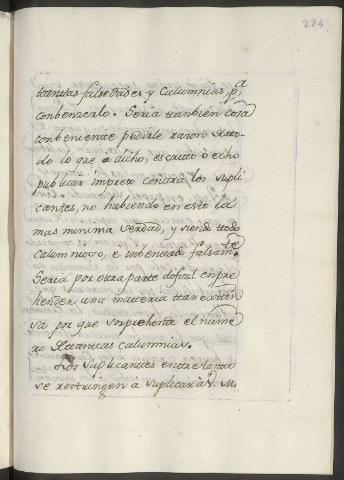 284
tantas falsedades y calumnias, pa
conbencerlo. Seria tanbien cosa
conbeniente pedirle razon de to-
do lo que a dicho, escrito ò echo
publicar impreso contra los supli
cantes, no habiendo en esto la
mas minima verdad, y siendo todo
calumnioso, e inbentado falsamte
Seria por otra parte dificil enpre
hender una materia tan exten
sa por que sorprehente el nume
ro de tantas calumnias.
Los suplicantes entretanto
se restringen à suplicar à V. M.